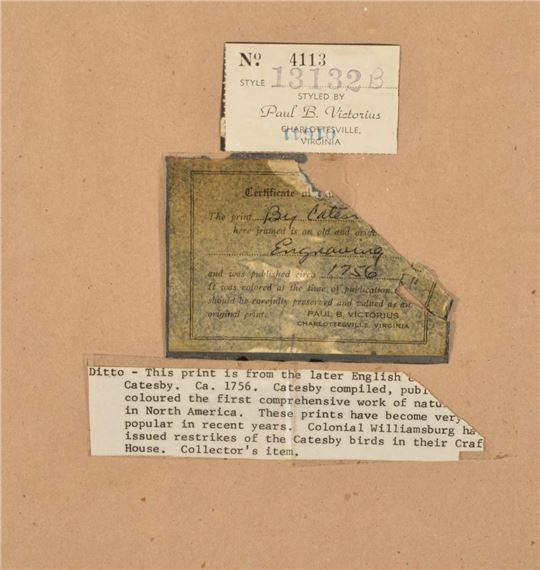 No. 4113
STYLE 13132 B
STYLED BY
Paul B. Victorius
CHARLOTTESVILLE,
VIRGINIA
Certificate
The print By Cates
here framed is an old and orig
Engraving
and was published circa 1756
It was colored at the time of publication.
should be carefully preserved and valued as an
original print. PAUL B. VICTORIUS
CHARLOTTESVILLE VIRGINIA
Ditto - This print is from the later English
Catesby. Ca. 1756. Catesby compiled, publ
coloured the first comprehensive work of natu
in North America. These prints have become very
popular in recent years. Colonial Williamsburg ha
issued restrikes of the Catesby birds in their Craf
House. Collector's item.